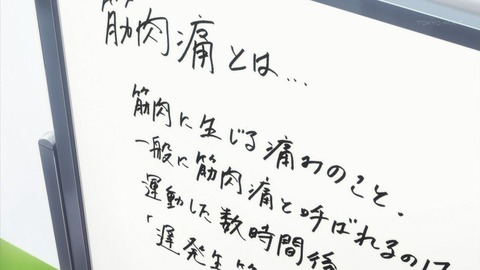 筋肉痛とは…
筋肉に生じる痛みのこと.
一般に筋肉痛と呼ばれるのは
運動した数時間後
「遅発生筋